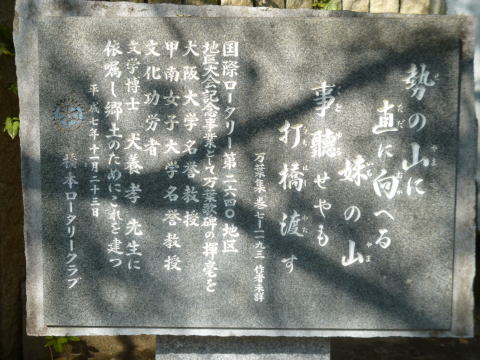 勢の山に
直に向へる
妹の山
事聴せやも
打橋渡す
万葉集 巻七―一一九三 作者未詳
国際ロータリー第二六四〇地区
地区大会記念事業として万葉歌碑の揮毫を
大阪大学名誉教授
甲南女子大学名誉教授
文化功労者
文学博士 犬養孝 先生に
依嘱し郷土のためにこれを建つ
平成七年十一月二十三日
橋本ロータリークラブ